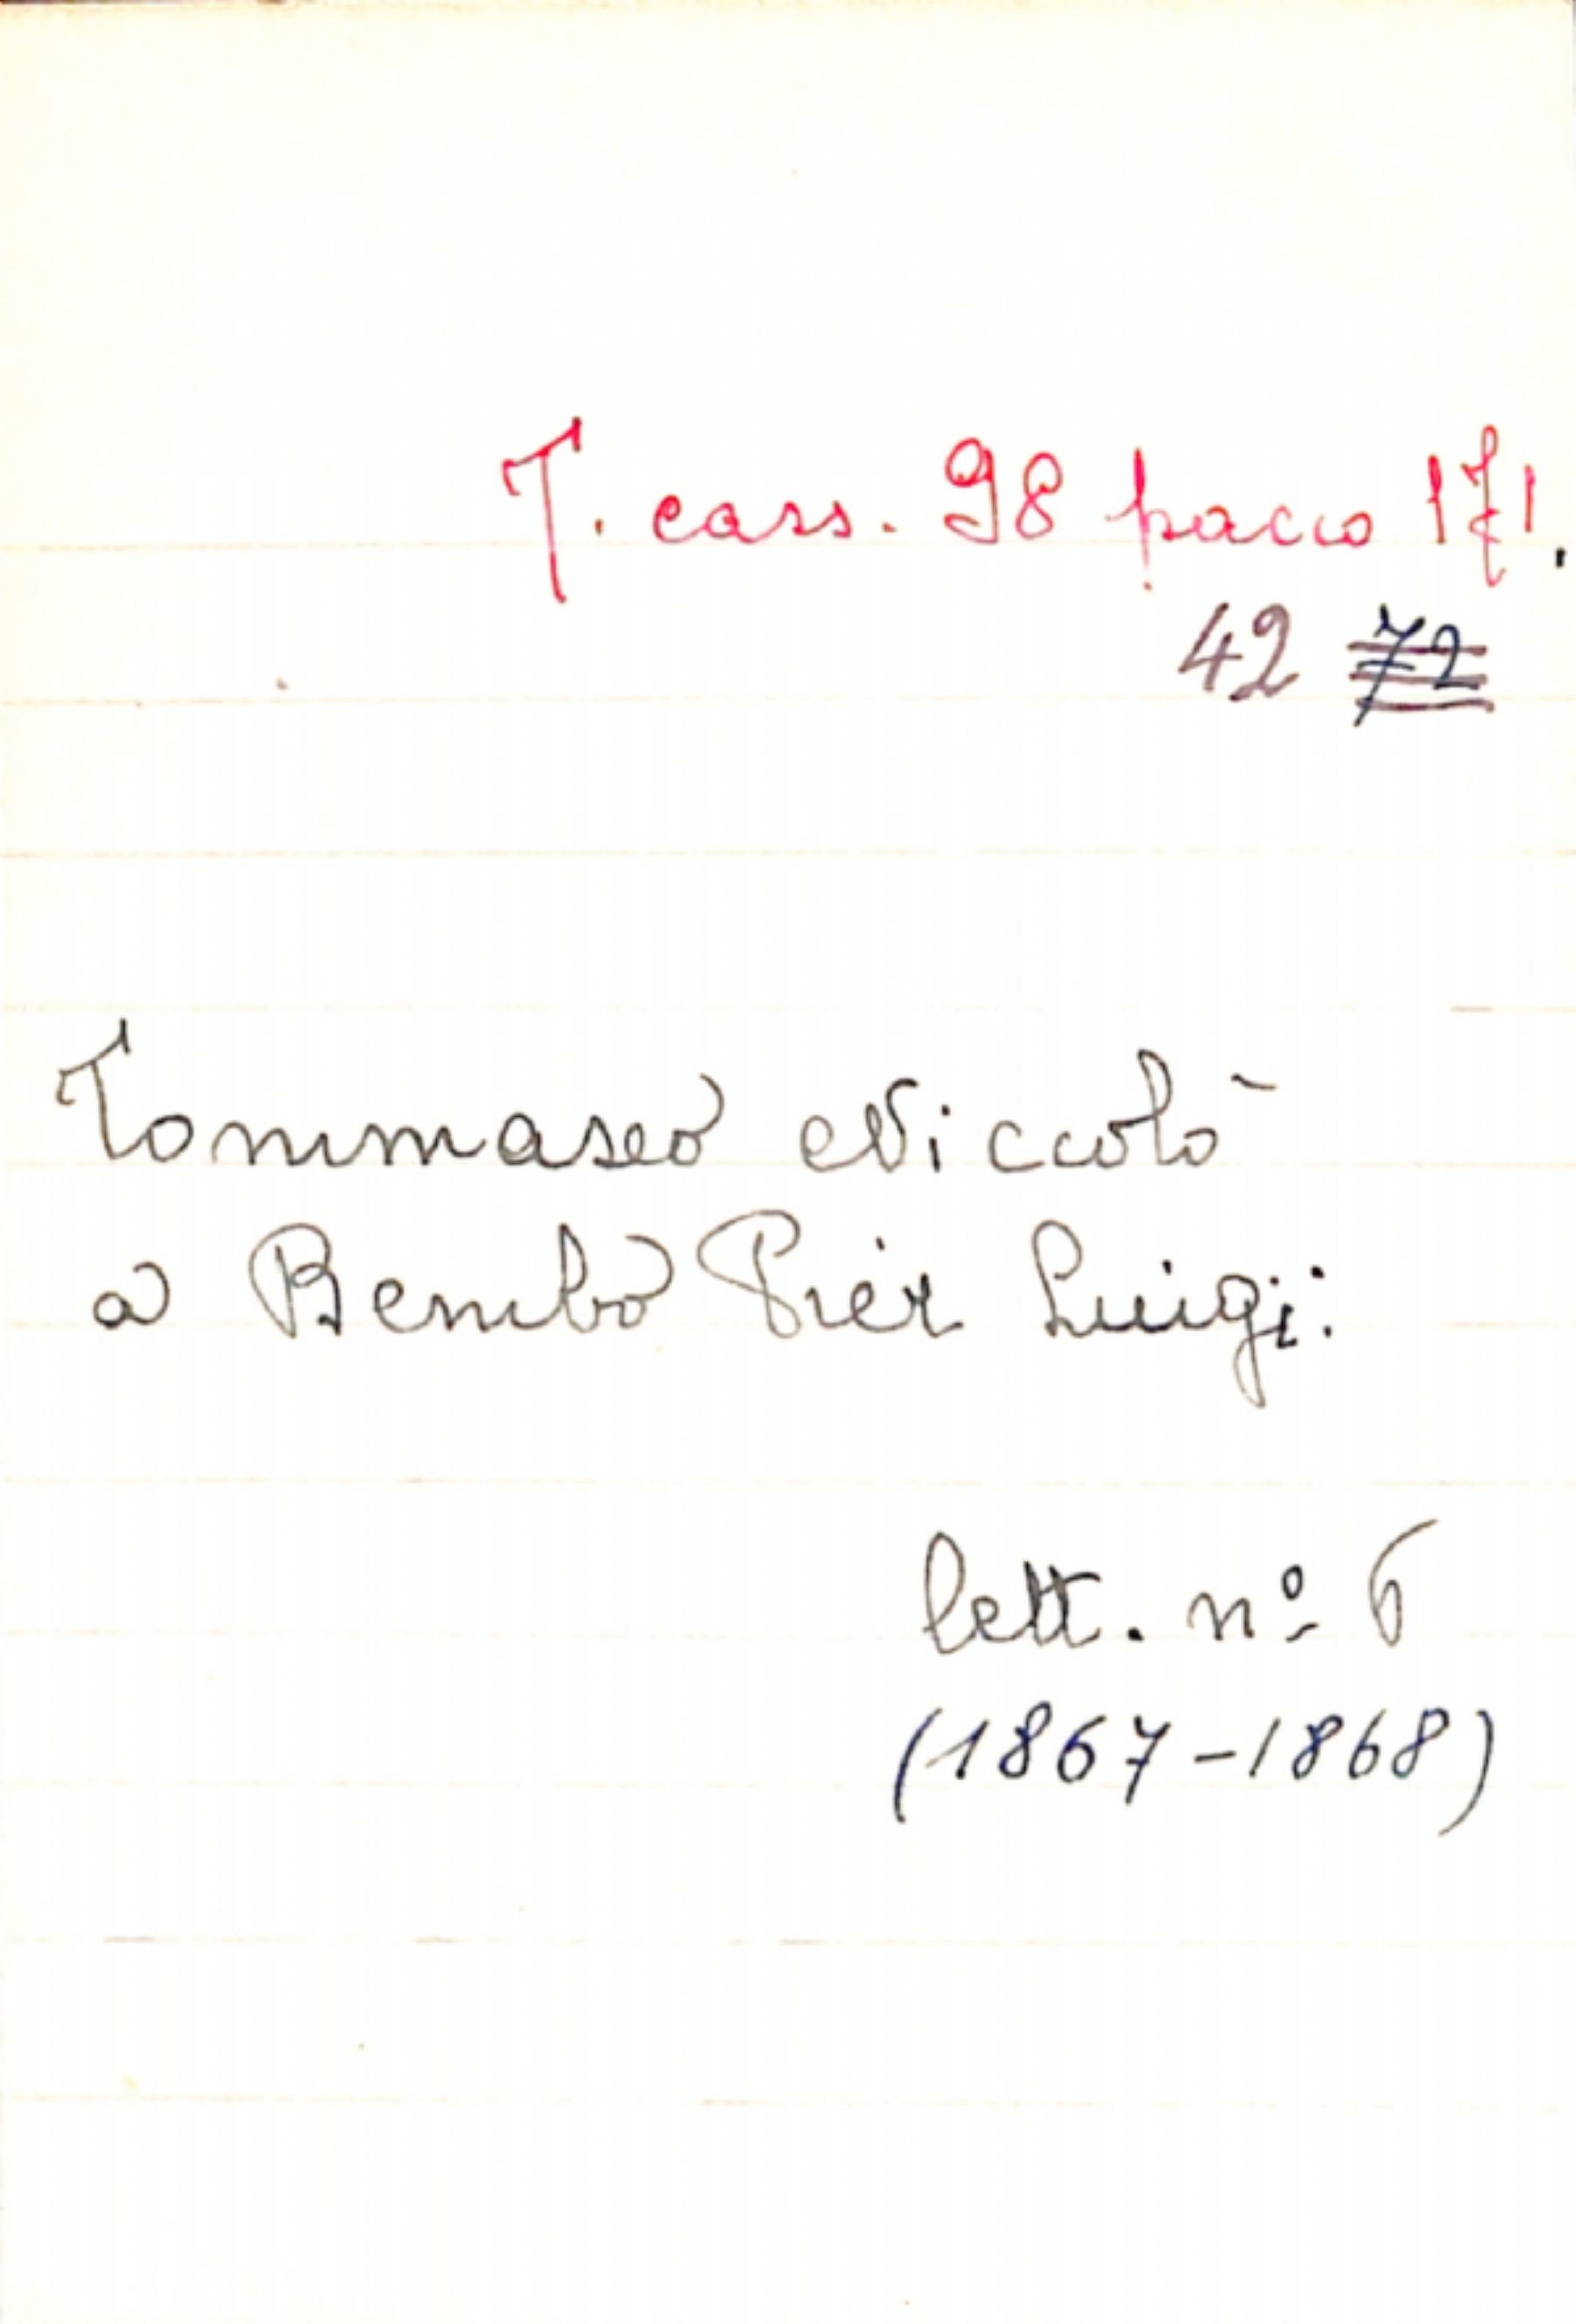 T. cass. 98 pacco 171.
42 72
Tommaseo Niccolò
a Bembo Pier Luigi:
lett. nº 6
(1867-1868)